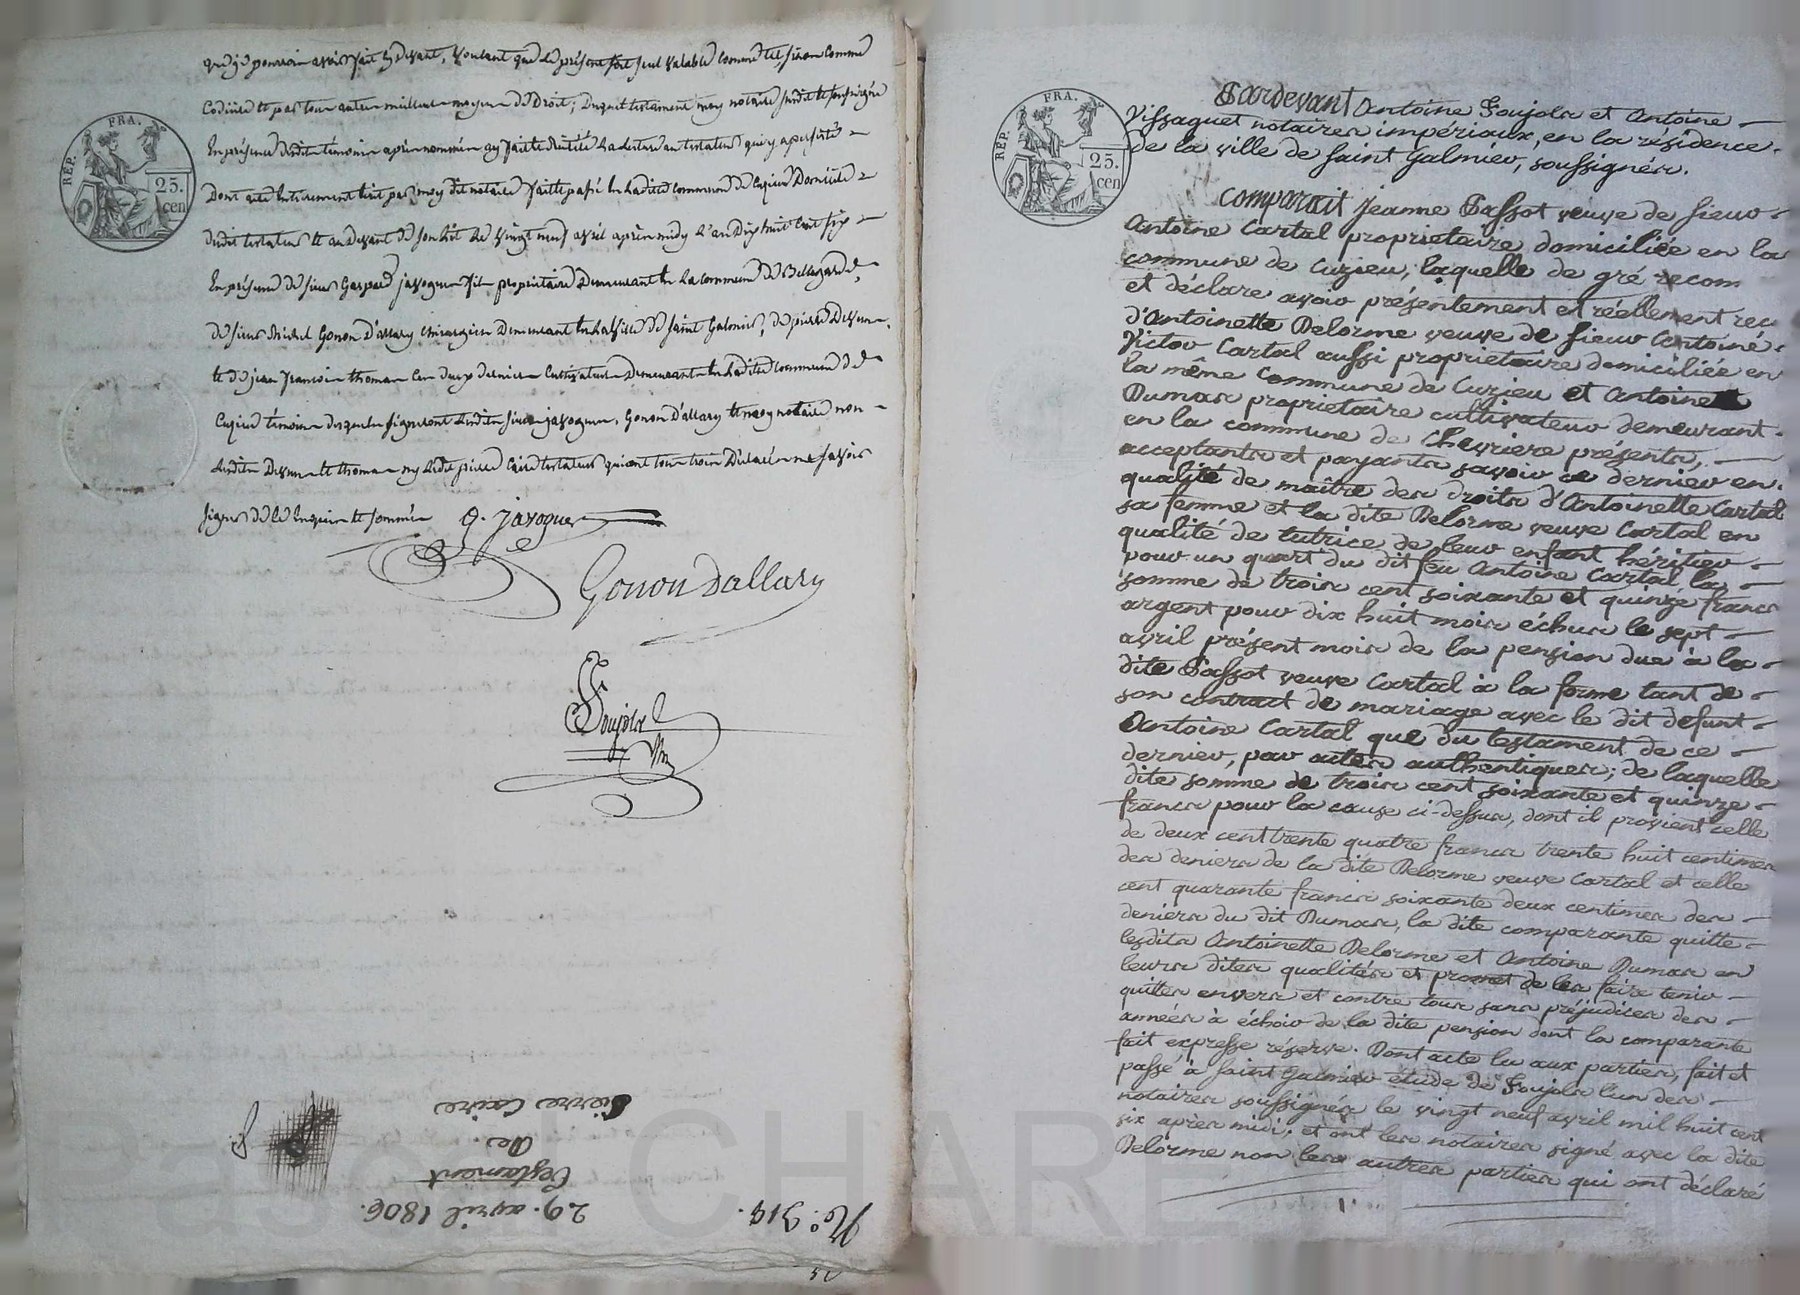 que je pourrois avoir fait cy devant, voulant que le présent soit seul valable comme tel, sinon comme
Codicile et par tout autre meilleur moyen de Droit; Duquel testament moy notaire susdit et soussigné
En présence desdits témoins après nommés ay fait et réitéré la lecture au testateur qui y a persisté
Dont acte Entièrement écrit par moy dit notaire fait et passé en ladite commune de Cuzieu Domicile
dudit testateur et au devant de son lit le vingt neuf avril après midy L'an Dix huit Cent six
En présence de sieur Gaspard javogues fils propriétaire Demeurant en la commune de Bellegarde,
de sieur Michel Gonon D'allary chirurgien Demeurant en la ville de saint Galmier, de pierre
et de jean françois thomas Ces deux derniers Cultivateurs Demeurants en ladite Commune de
Cuzieu témoins desquels signeront lesdits sieurs javogues, Gonon D'allary et moy notaire non
lesdits et thomas ny ledit pierre Caire testateur qui ont tous trois Déclaré ne savoir
signer de ce Enquis et sommés
G. javogues
Gonon Dallary
Soujols
No. 314.
29. avril 1806.
Testament
De
Pierre Caire
RÉP. FRA.
25.
cen
RÉP. FRA.
25.
cen
Pardevant Antoine Soujols et Antoine
Vissaguet notaires impériaux, en la résidence
de la ville de saint Galmier, soussignés.
Comparait Jeanne Passot veuve de sieur
Antoine Cartal proprietaire domiciliée en la
commune de Cuzieu, laquelle de gré recon
et déclare avoir présentement et réellement rec
d'Antoinette Delorme veuve de sieur Antoine
Victor Cartal aussi proprietaire domiciliée en
la même commune de Cuzieu et Antoine
Dumas proprietaire cultivateur demeurant
en la commune de Chevriere présents,
acceptants et payants savoir ce dernier en
qualité de maître des droits d'Antoinette Cartal
sa femme et la dite Delorme veuve Cartal en
qualité de tutrice de leur enfant héritier
pour un quart du dit feu Antoine Cartal la
somme de trois cent soixante et quinze francs
argent pour dix huit mois échus le sept
avril présent mois de la pension due à la
dite Passot veuve Cartal à la forme tant de
son contrat de mariage avec le dit defunt
Antoine Cartal que du testament de ce
dernier, par actes authentiques; de laquelle
dite somme de trois cent soixante et quinze
francs pour la cause ci-dessus, dont il provient celle
de deux cent trente quatre francs trente huit centimes
des deniers de la dite Delorme veuve Cartal et celle
cent quarante francs soixante deux centimes des
deniers du dit Dumas, la dite comparante quitte
lesdits Antoinette Delorme et Antoine Dumas en
leurs dites qualités et promet de les faire tenir
quittes envers et contre tous sans préjudice des
années à échoir de la dite pension dont la comparante
fait expresse réserve. Dont acte lu aux parties, fait et
passé à saint Galmier étude de Soujols l'un des
notaires soussignés le vingt neuf avril mil huit cent
six après midi; et ont les notaires signé avec la dite
Delorme non les autres parties qui ont déclaré
Pascal CHARE